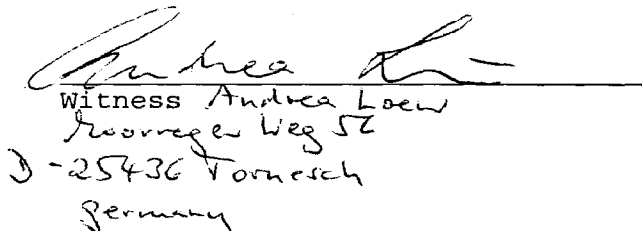 Andrea
Witness Andrea Loew
Moorreger Weg 5c
D-25436 Tornesch
Germany